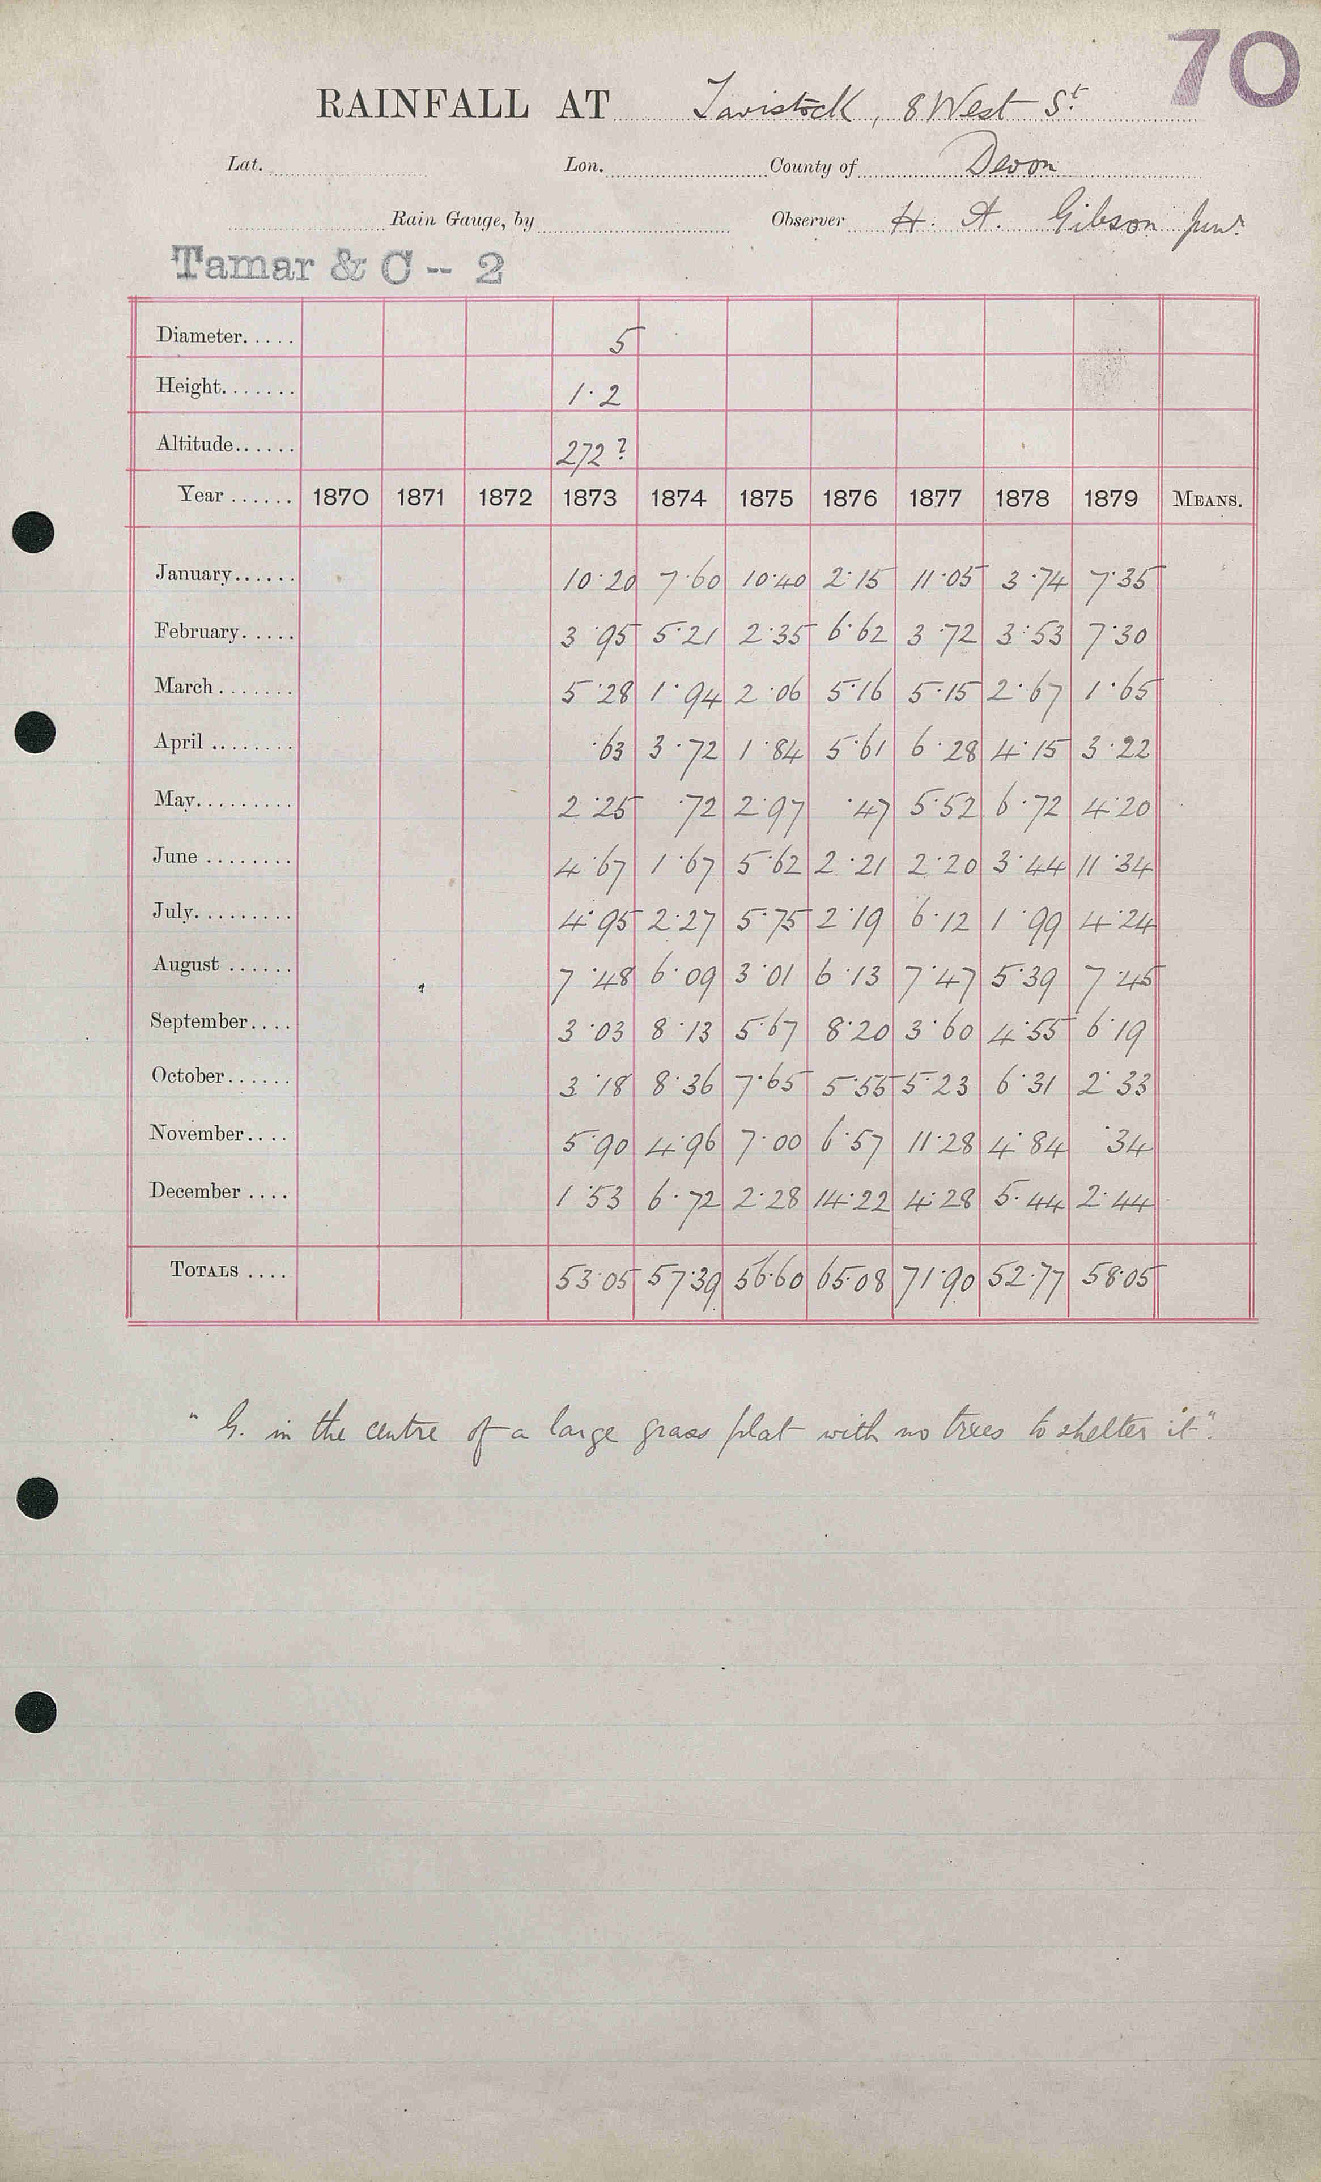 70
RAINFALL AT Tavistock, 8 West St.
Lat. Lon. County of Devon
Rain Gauge, by Observer H. A. Gibson Junr.
Tamar & C -- 2
Diameter..... 5
Height....... 1.2
Altitude...... 272?
Year ...... 1870 1871 1872 1873 1874 1875 1876 1877 1878 1879 MEANS.
January...... 10.20 7.60 10.40 2.15 11.05 3.74 7.35
February..... 3.95 5.21 2.35 6.62 3.72 3.53 7.30
March ....... 5.28 1.94 2.06 5.16 5.15 2.67 1.65
April ........ .63 3.72 1.84 5.61 6.28 4.15 3.22
May......... 2.25 .72 2.97 .47 5.52 6.72 4.20
June ........ 4.67 1.67 5.62 2.21 2.20 3.44 11.34
July......... 4.95 2.27 5.75 2.19 6.12 1.99 4.24
August ...... 7.48 6.09 3.01 6.13 7.47 5.39 7.45
September.... 3.03 8.13 5.67 8.20 3.60 4.55 6.19
October...... 3.18 8.36 7.65 5.55 5.23 6.31 2.33
November.... 5.90 4.96 7.00 6.57 11.28 4.84 .34
December .... 1.53 6.72 2.28 14.22 4.28 5.44 2.44
TOTALS .... 53.05 57.39 56.60 65.08 71.90 52.77 58.05
"G. in the centre of a large grass plat with no trees to shelter it".